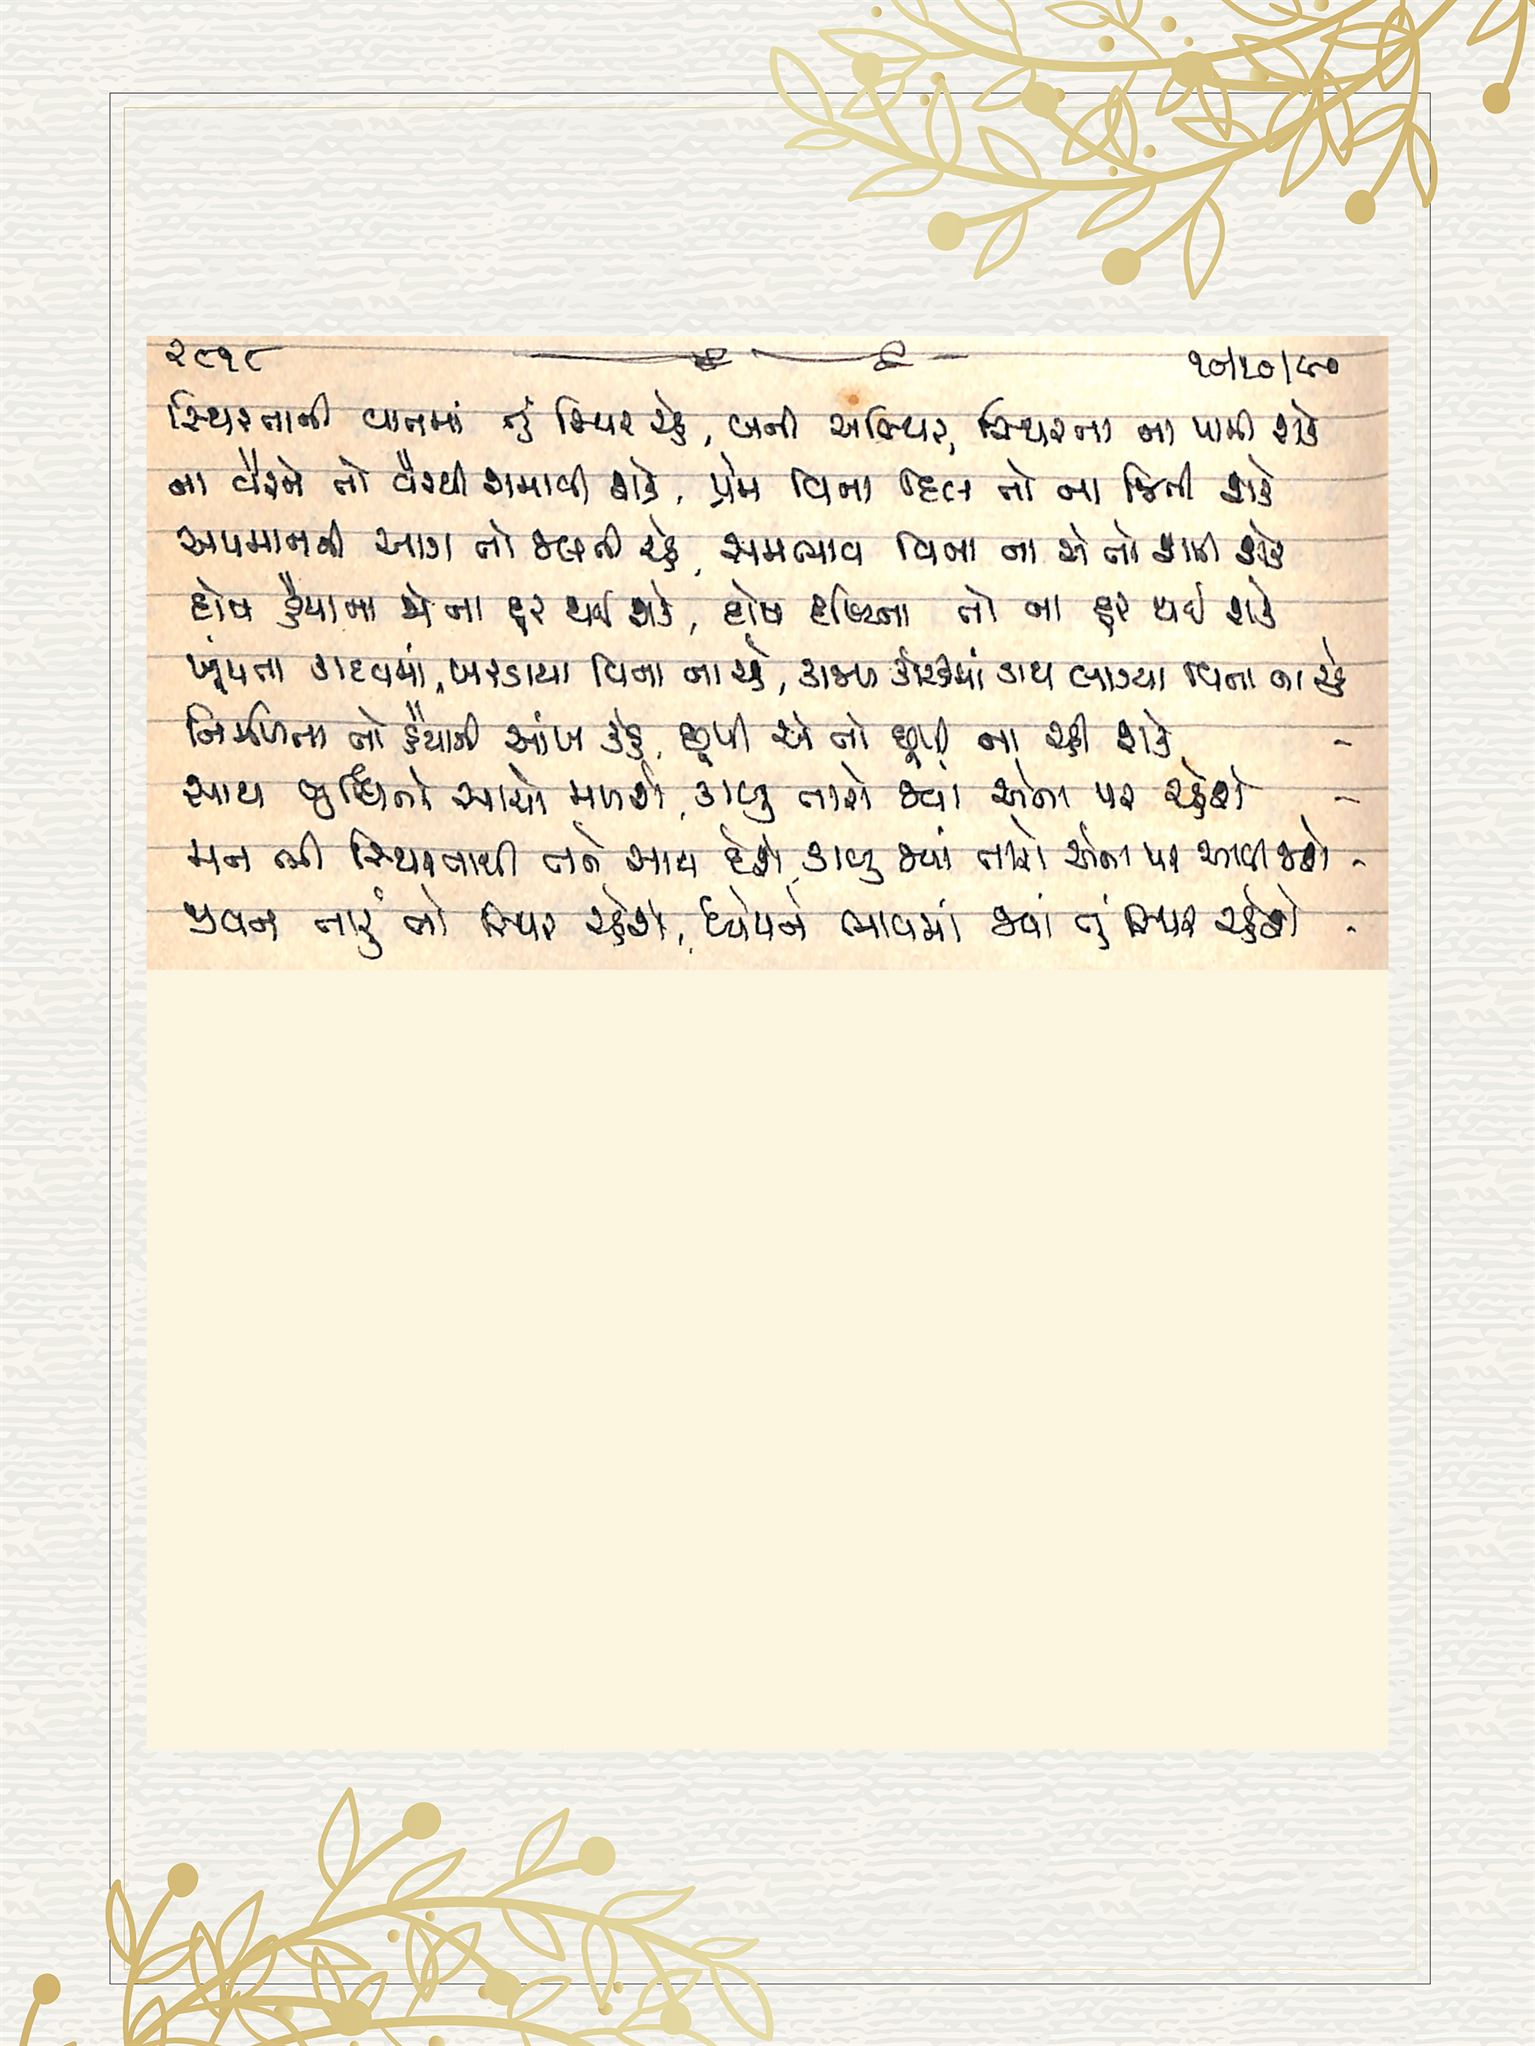 ૨૯૧૮ ૧૦/૧૦/૯૦
સ્થિરતાની વાતમાં તું સ્થિર રહે, બની અસ્થિર, સ્થિરતા ના પામી શકે
ના વૈરને તો વૈરથી શમાવી શકે, પ્રેમ વિના દિલ તો ના જિતી શકે
અપમાનની આગ તો જલતી રહે, સમભાવ વિના ના એ તો શમી શકે
દોષ હૈયાના એ ના દૂર થઈ શકે, દોષ દૃષ્ટિના તો ના દૂર થઈ શકે
ખૂંપતા કાદવમાં, ખરડાયા વિના ના રહે, કાજળ કોટડીમાં ડાઘ લાગ્યા વિના ના રહે
નિર્મળતા તો હૈયાની આંખ કહે, છૂપી એ તો છૂપી ના રહી શકે -
સાથ બુદ્ધિનો સાચો મળશે, કાબુ તારો જ્યાં એના પર રહેશે -
મન ભી સ્થિરતાથી તને સાથ દેશે, કાબુ જ્યાં તારો એના પર આવી જાશે -
જીવન તારું તો સ્થિર રહેશે, ધ્યેયને ભાવમાં જ્યાં તું સ્થિર રહેશે -